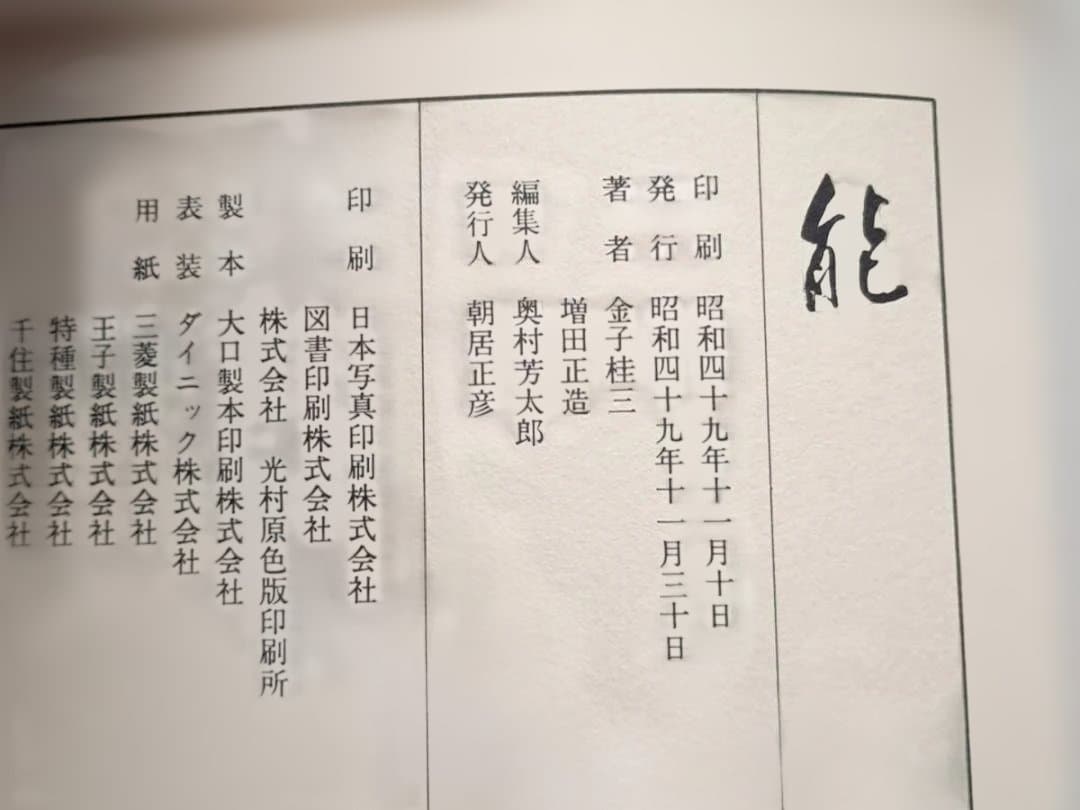 能
印刷 昭和四十九年十一月十日
発行 昭和四十九年十一月三十日
著者 金子桂三
増田正造
編集人 奥村芳太郎
発行人 朝居正彦
印刷 日本写真印刷株式会社
図書印刷株式会社
株式会社 光村原色版印刷所
製本 大口製本印刷株式会社
表装 ダイニック株式会社
用紙 三菱製紙株式会社
王子製紙株式会社
特種製紙株式会社
千住製紙株式会社